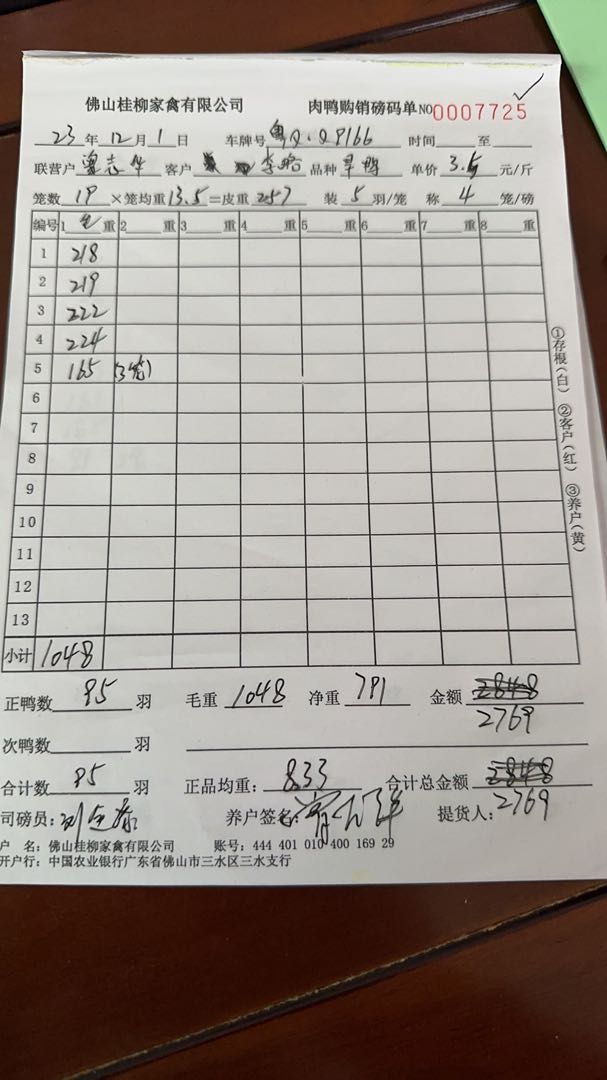 佛山桂柳家禽有限公司 肉鸭购销磅码单 NO 0007725
23 年 12 月 1 日 车牌号 粤Q·Q9166 时间 至
联营户 曾志华 客户 李哈 品种 旱鸭 单价 3.5 元/斤
笼数 19 ×笼均重 13.5 =皮重 257 装 5 羽/笼 称 4 笼/磅
编号 1 毛 重 2 重 3 重 4 重 5 重 6 重 7 重 8 重
1 218
2 219
3 222
4 224
5 165 (3笼)
6
7
8
9
10
11
12
13
小计 1048
①存根(白) ②客户(红) ③养户(黄)
正鸭数 95 羽 毛重 1048 净重 791 金额 2848
2769
次鸭数 羽
合计数 95 羽 正品均重: 833 合计总金额 2848
司磅员: 养户签名: 提货人: 2769
户 名: 佛山桂柳家禽有限公司 账号: 444 401 010 400 169 29
开户行: 中国农业银行广东省佛山市三水区三水支行